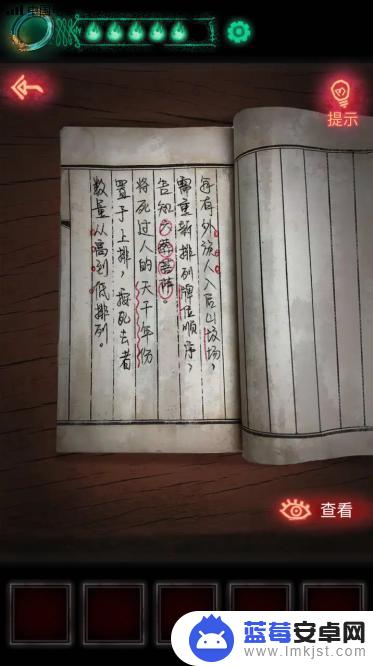 提示
每有外族人入后山坟场，
需重新排列牌位顺序，
告知六葬菩萨。
将死过人的天干年份
置于上排，按死去者
数量从高到低排列。
查看
蓝莓安卓网
www.lmkjst.com